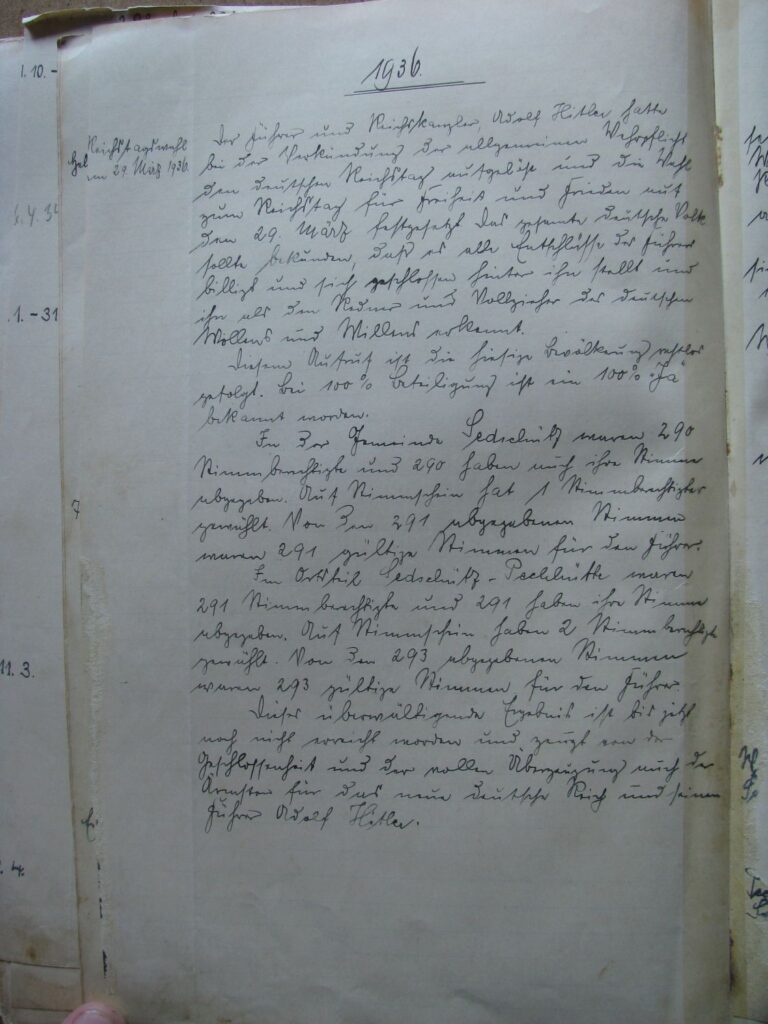 1936.
Reichstagswahl
am 29. März 1936.
Der Führer und Reichskanzler, Adolf Hitler, hatte
bei der Verkündung der allgemeinen Wehrpflicht
den deutschen Reichstag aufgelöst und die Wahl
zum Reichstag für Freiheit und Frieden auf
den 29. März festgesetzt. Das gesamte deutsche Volk
sollte bekunden, daß es alle Entschlüsse des Führers
billigt und sich geschlossen hinter ihn stellt und
ihn als den Redner und Vollzieher des deutschen
Wollens und Willens erkennt.
Diesem Aufruf ist die hiesige Bevölkerung restlos
gefolgt. Bei 100% Beteiligung ist ein 100% "Ja"
bekannt worden.
In der Gemeinde Sedschütz waren 290
Stimmberechtigte und 290 haben auch ihre Stimme
abgegeben. Auf Stimmschein hat 1 Stimmberechtigter
gewählt. Von den 291 abgegebenen Stimmen
waren 291 gültige Stimmen für den Führer.
Im Ortsteil Sedschütz - Pechhütte waren
291 Stimmberechtigte und 291 haben ihre Stimme
abgegeben. Auf Stimmschein haben 2 Stimmberechtigte
gewählt. Von den 293 abgegebenen Stimmen
waren 293 gültige Stimmen für den Führer.
Dieses überwältigende Ergebnis ist bis jetzt
noch nicht erreicht worden und zeugt von der
Geschlossenheit und der vollen Überzeugung auch der
Ärmsten für das neue deutsche Reich und seinen
Führer Adolf Hitler.
1.10.-
.1.-31
11.3.